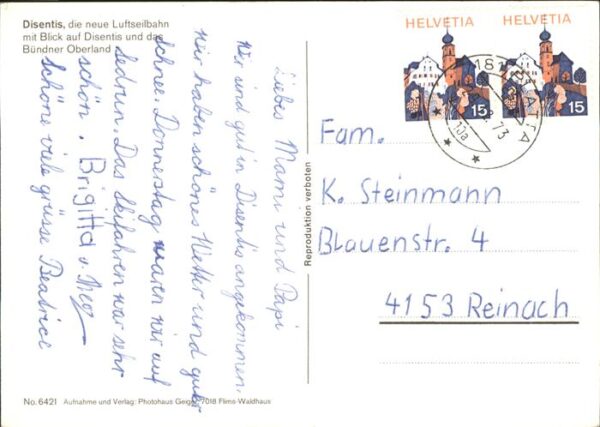 Disentis, die neue Luftseilbahn
mit Blick auf Disentis und das
Bündner Oberland
Liebes Mami und Papi
Wir sind gut in Disentis angekommen.
Wir haben schönes Wetter und guter
Schnee. Donnerstag waren wir auf
Sedrun. Das Skifahren war sehr
schön. Brigitta u.
Schöne viele grüsse Beatrice
No. 6421 Aufnahme und Verlag: Photohaus Geiger, 7018 Flims-Waldhaus
Reproduktion verboten
HELVETIA HELVETIA
15 15
73
Fam.
K. Steinmann
Blauenstr. 4
4153 Reinach